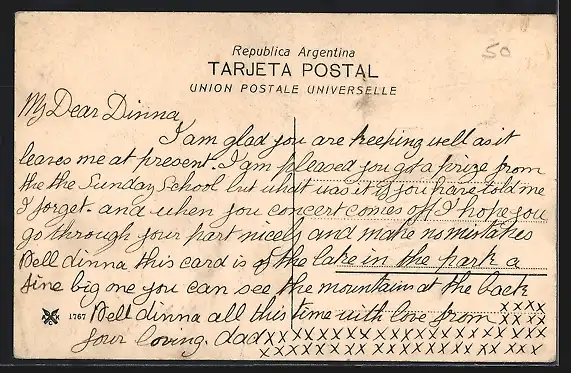 50
Republica Argentina
TARJETA POSTAL
UNION POSTALE UNIVERSELLE
My Dear Dinna
I am glad you are keeping well as it
leaves me at present. I am pleased you got a prize from
the the Sunday School but what was it if you have told me
I forget. and when you concert comes off I hope you
go through your part nicely and make no mistakes
Well dinna this card is of the lake in the park a
fine big one you can see the mountains at the back
1767 Well dinna all this time with love from xxxx
your loving. dad xxxxxxxxxxxxxxxxxx
xxxxxxxxxxxxxxxxxx